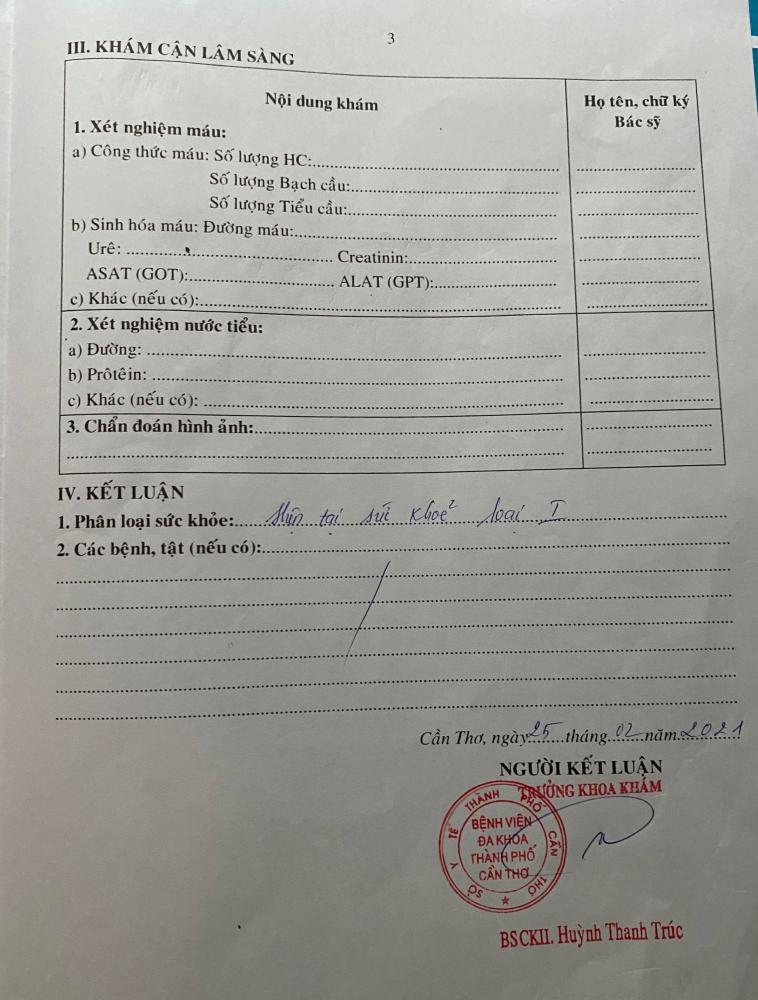 3
III. KHÁM CẬN LÂM SÀNG
Nội dung khám
Họ tên, chữ ký
Bác sỹ
1. Xét nghiệm máu:
a) Công thức máu: Số lượng HC:
Số lượng Bạch cầu:
Số lượng Tiểu cầu:
b) Sinh hóa máu: Đường máu:
Urê: Creatinin:
ASAT (GOT): ALAT (GPT):
c) Khác (nếu có):
2. Xét nghiệm nước tiểu:
a) Đường:
b) Prôtêin:
c) Khác (nếu có):
3. Chẩn đoán hình ảnh:
IV. KẾT LUẬN
1. Phân loại sức khỏe: Hiện tại sức khoẻ loại I
2. Các bệnh, tật (nếu có):
Cần Thơ, ngày 25 tháng 02 năm 2021
NGƯỜI KẾT LUẬN
TRƯỞNG KHOA KHÁM
SỞ Y TẾ THÀNH PHỐ CẦN THƠ
BỆNH VIỆN
ĐA KHOA
THÀNH PHỐ
CẦN THƠ
BSCKII. Huỳnh Thanh Trúc